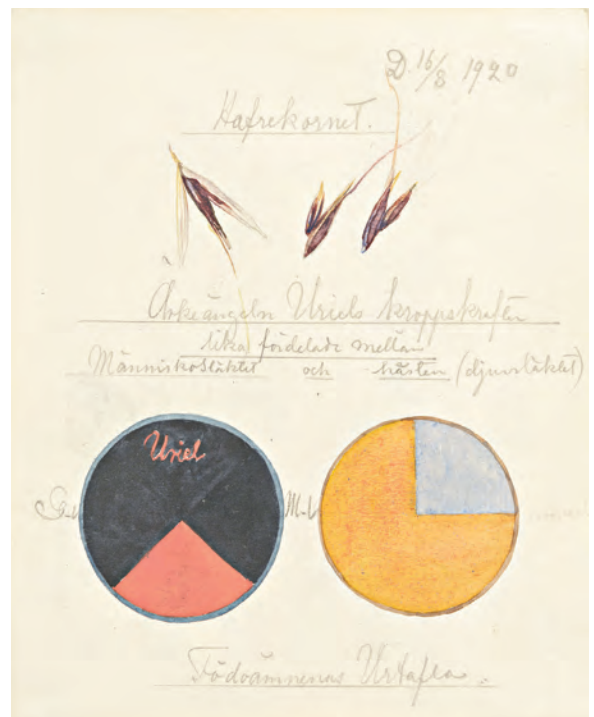 D. 16/8 1920
Hafrekornet.
Ärkeängeln Uriels kroppskrafter
lika fördelade mellan
Människosläktet och hästen (djursläktet)
Uriel
M-U
Födoämnenas Urtafla.